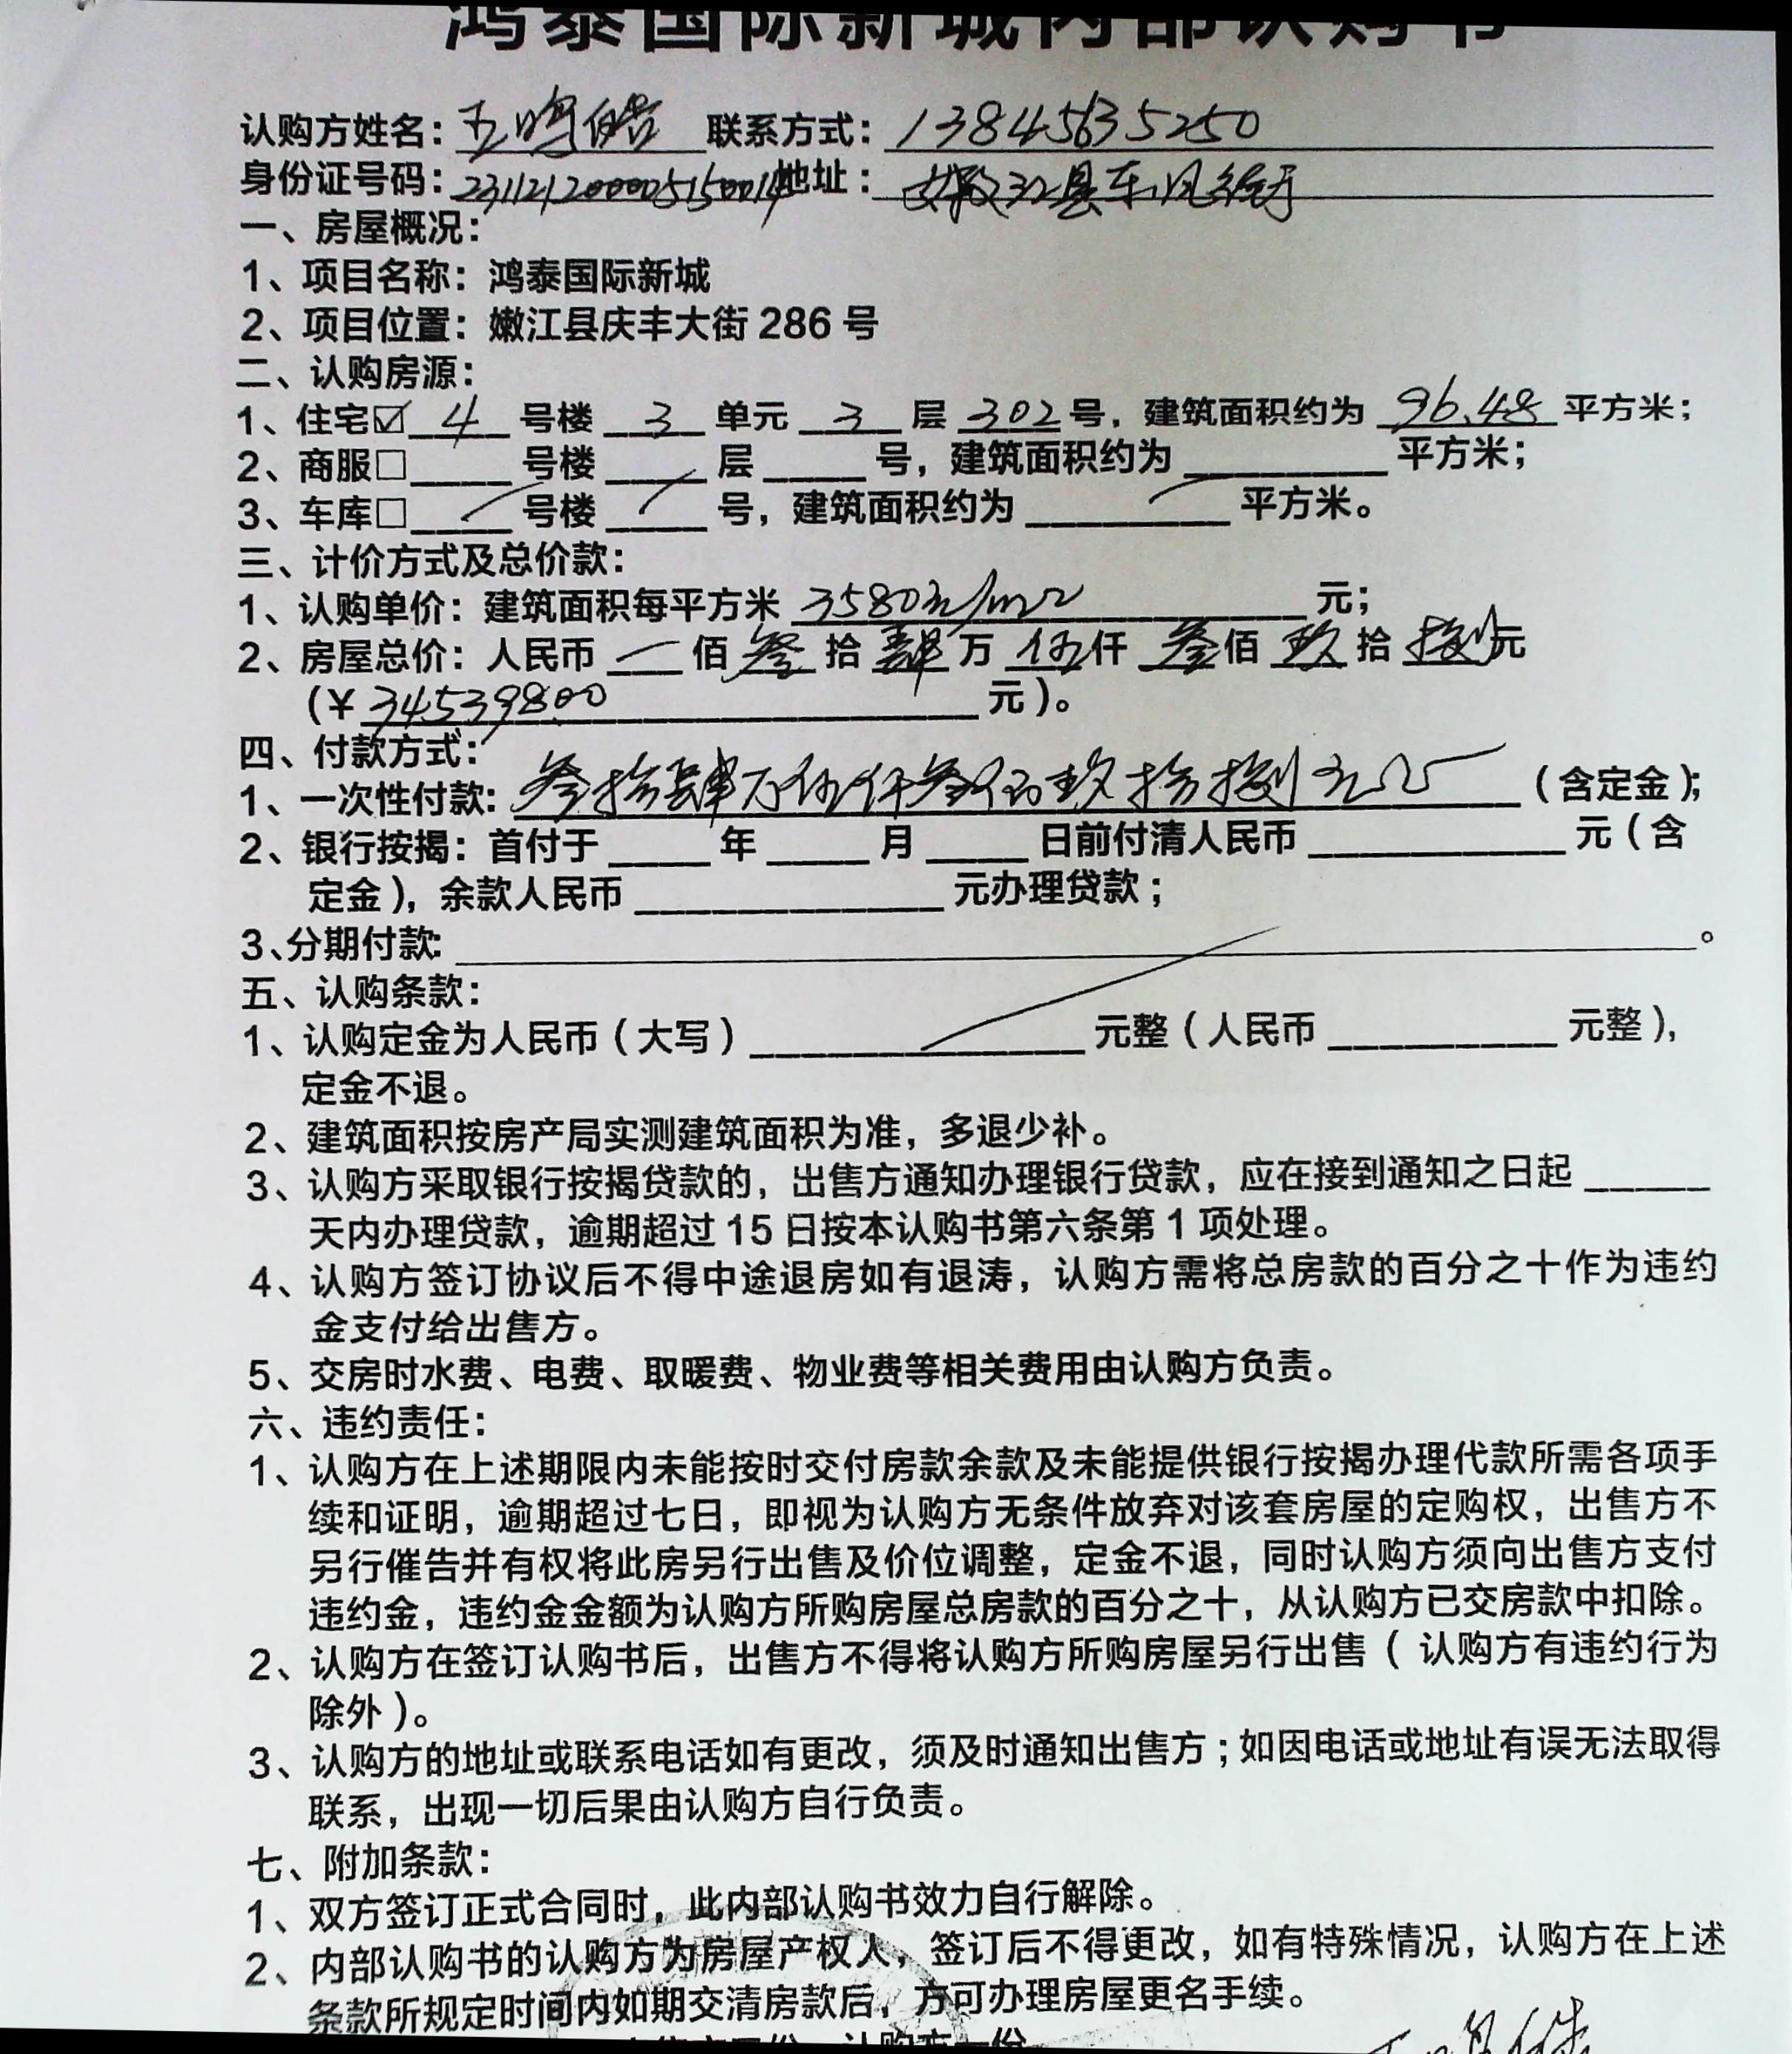 鸿泰国际新城内部认购书
认购方姓名：王 联系方式：13845635250
身份证号码： 地址：嫩江县东风街
一、房屋概况：
1、项目名称：鸿泰国际新城
2、项目位置：嫩江县庆丰大街 286 号
二、认购房源：
1、住宅☑ 4 号楼 3 单元 3 层 302 号，建筑面积约为 96.48 平方米；
2、商服□____号楼____层____号，建筑面积约为________平方米；
3、车库□____号楼____号，建筑面积约为________平方米。
三、计价方式及总价款：
1、认购单价：建筑面积每平方米 3580元/m2 元；
2、房屋总价：人民币 一 佰 叁 拾 肆 万 伍 仟 叁 佰 玖 拾 捌 元
（￥345398.00 元）。
四、付款方式：
1、一次性付款：叁拾肆万伍仟叁佰玖拾捌元（含定金）；
2、银行按揭：首付于____年____月____日前付清人民币__________元（含
定金），余款人民币____________元办理贷款；
3、分期付款：____________。
五、认购条款：
1、认购定金为人民币（大写）____________元整（人民币_________元整），
定金不退。
2、建筑面积按房产局实测建筑面积为准，多退少补。
3、认购方采取银行按揭贷款的，出售方通知办理银行贷款，应在接到通知之日起_____
天内办理贷款，逾期超过 15 日按本认购书第六条第 1 项处理。
4、认购方签订协议后不得中途退房如有退涛，认购方需将总房款的百分之十作为违约
金支付给出售方。
5、交房时水费、电费、取暖费、物业费等相关费用由认购方负责。
六、违约责任：
1、认购方在上述期限内未能按时交付房款余款及未能提供银行按揭办理代款所需各项手
续和证明，逾期超过七日，即视为认购方无条件放弃对该套房屋的定购权，出售方不
另行催告并有权将此房另行出售及价位调整，定金不退，同时认购方须向出售方支付
违约金，违约金金额为认购方所购房屋总房款的百分之十，从认购方已交房款中扣除。
2、认购方在签订认购书后，出售方不得将认购方所购房屋另行出售（认购方有违约行为
除外）。
3、认购方的地址或联系电话如有更改，须及时通知出售方；如因电话或地址有误无法取得
联系，出现一切后果由认购方自行负责。
七、附加条款：
1、双方签订正式合同时，此内部认购书效力自行解除。
2、内部认购书的认购方为房屋产权人，签订后不得更改，如有特殊情况，认购方在上述
条款所规定时间内如期交清房款后，方可办理房屋更名手续。
认购方一份